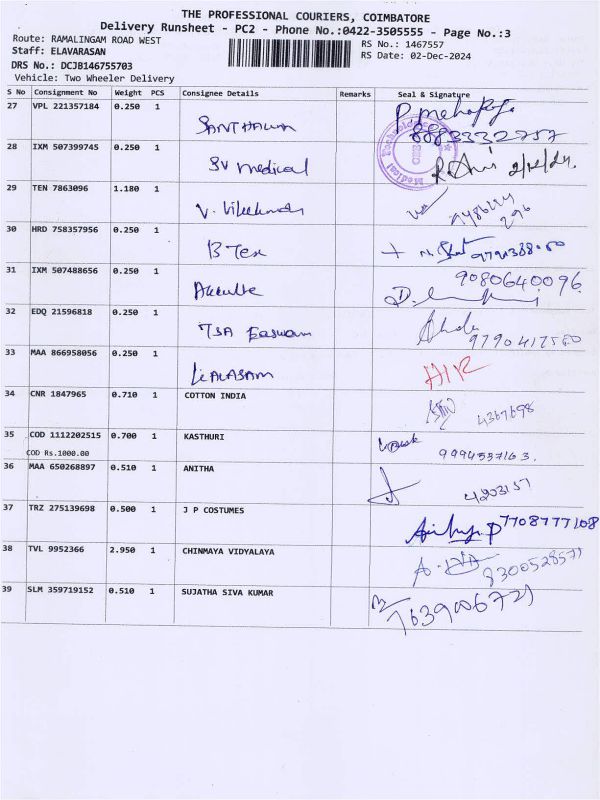 THE PROFESSIONAL COURIERS, COIMBATORE
Delivery Runsheet - PC2 - Phone No.:0422-3505555 - Page No.:3
Route: RAMALINGAM ROAD WEST
RS No.: 1467557
Staff: ELAVARASAN
RS Date: 02-Dec-2024
DRS No.: DCJB146755703
Vehicle: Two Wheeler Delivery
S No Consignment No Weight PCS Consignee Details Remarks Seal & Signature
27 VPL 221357184 0.250 1
8883332757
28 IXM 507399745 0.250 1 SV medical
29 TEN 7863096 1.180 1 V.
30 HRD 758357956 0.250 1 B Tex
31 IXM 507488656 0.250 1 9080640096
32 EDQ 21596818 0.250 1 TSA Easwaran
33 MAA 866958056 0.250 1 KALASAM
34 CNR 1847965 0.710 1 COTTON INDIA 4367698
35 COD 1112202515 0.700 1 KASTHURI 9994557163.
COD Rs.1000.00
36 MAA 650268897 0.510 1 ANITHA 4203157
37 TRZ 275139698 0.500 1 J P COSTUMES 7708777108
38 TVL 9952366 2.950 1 CHINMAYA VIDYALAYA 8300528571
39 SLM 359719152 0.510 1 SUJATHA SIVA KUMAR 7639006721